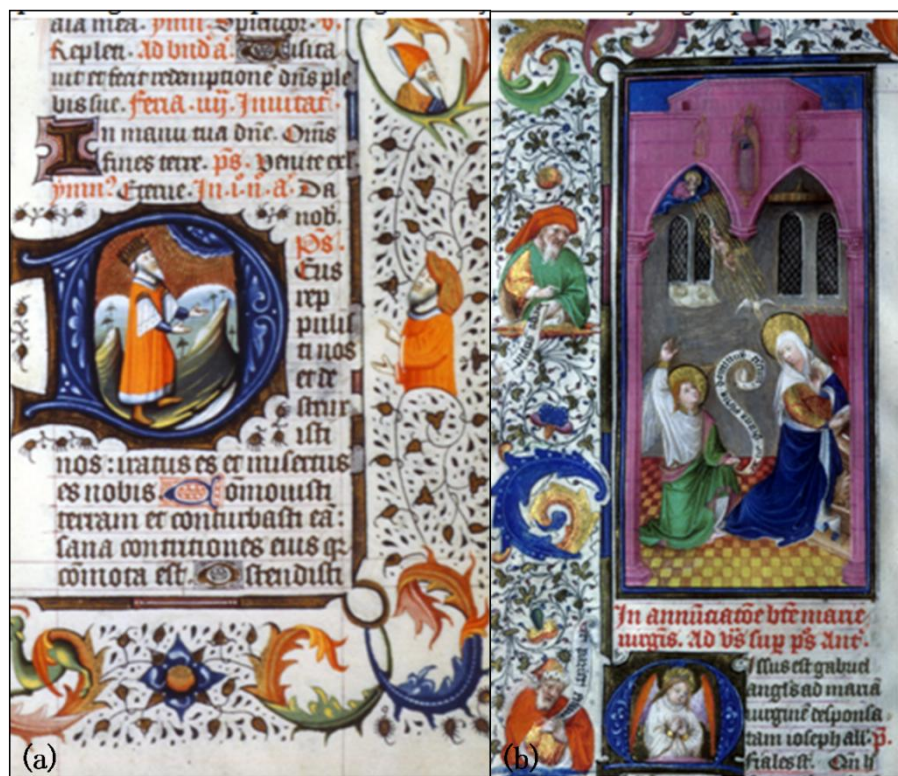 ala mea. ymn⁹. Splendor. v.
Repleti. Ad bñd a. Visita
uit et fecit redemptionē dns ple
bis sue. feria .iiij. Inuitat.
In manu tua dñe. Oms
fines terre. ps. Venite
ymn⁹ Eterne. In .i. n. a. Da
nob.
ps.
Deus
rep
pulis
ti nos
et de
strux
isti
nos: iratus es et misertus
es nobis. Cōmouisti
terram et conturbasti eā:
sana contritiones eius qr
cōmota est. Ostendisti
(a)
In annūciatōe bte marie
uirgīs. Ad vs sup ps Ant.
Missus est gabriel
angls ad mariā
uirginē desponsa
tam ioseph all. p.
fiales st. Om h
(b)